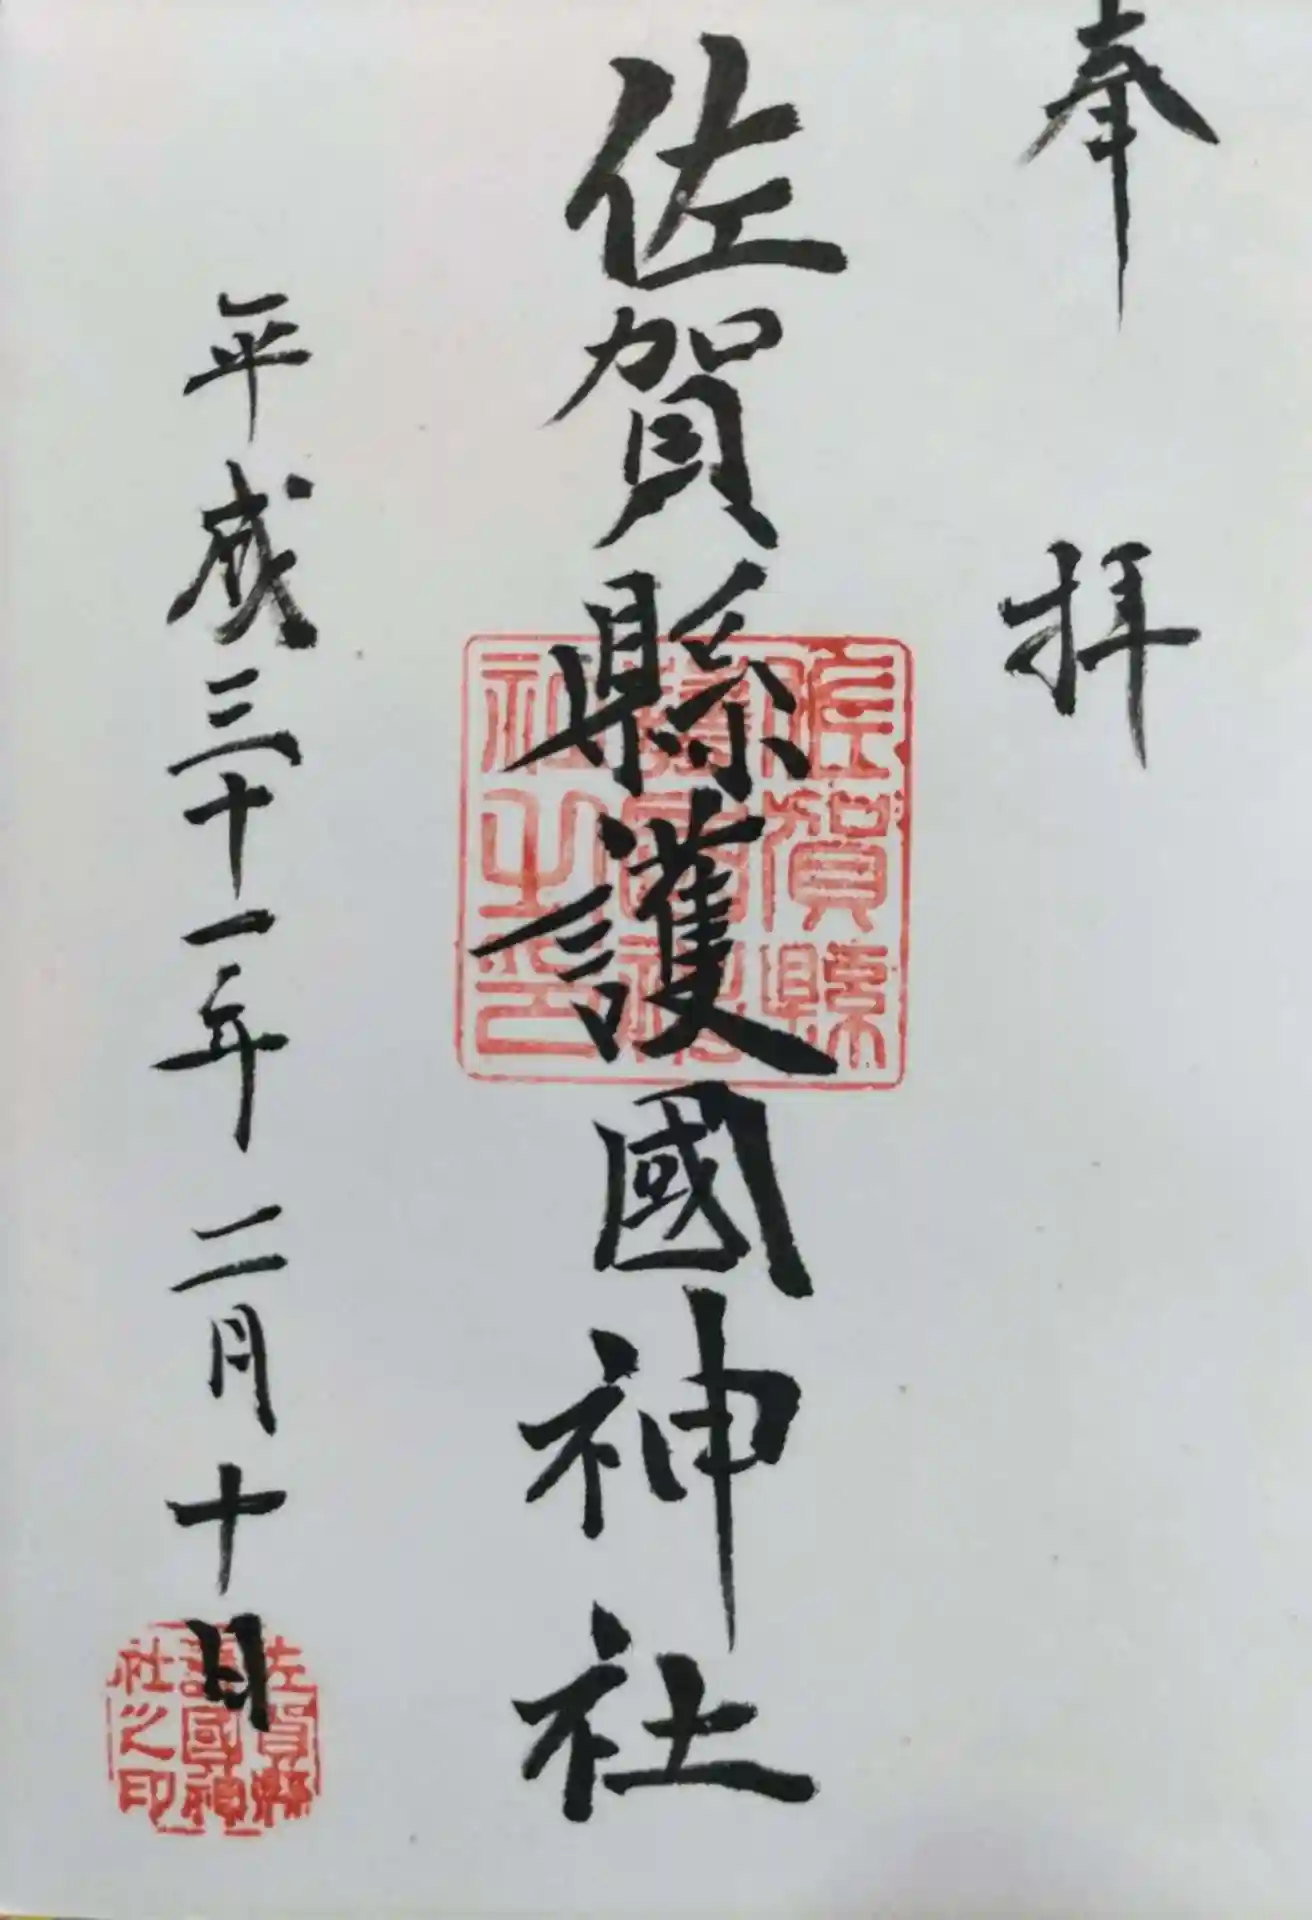 奉拝
佐賀縣護國神社
佐賀縣
護國神
社之印
平成三十一年二月十日
佐賀縣
護國神
社之印